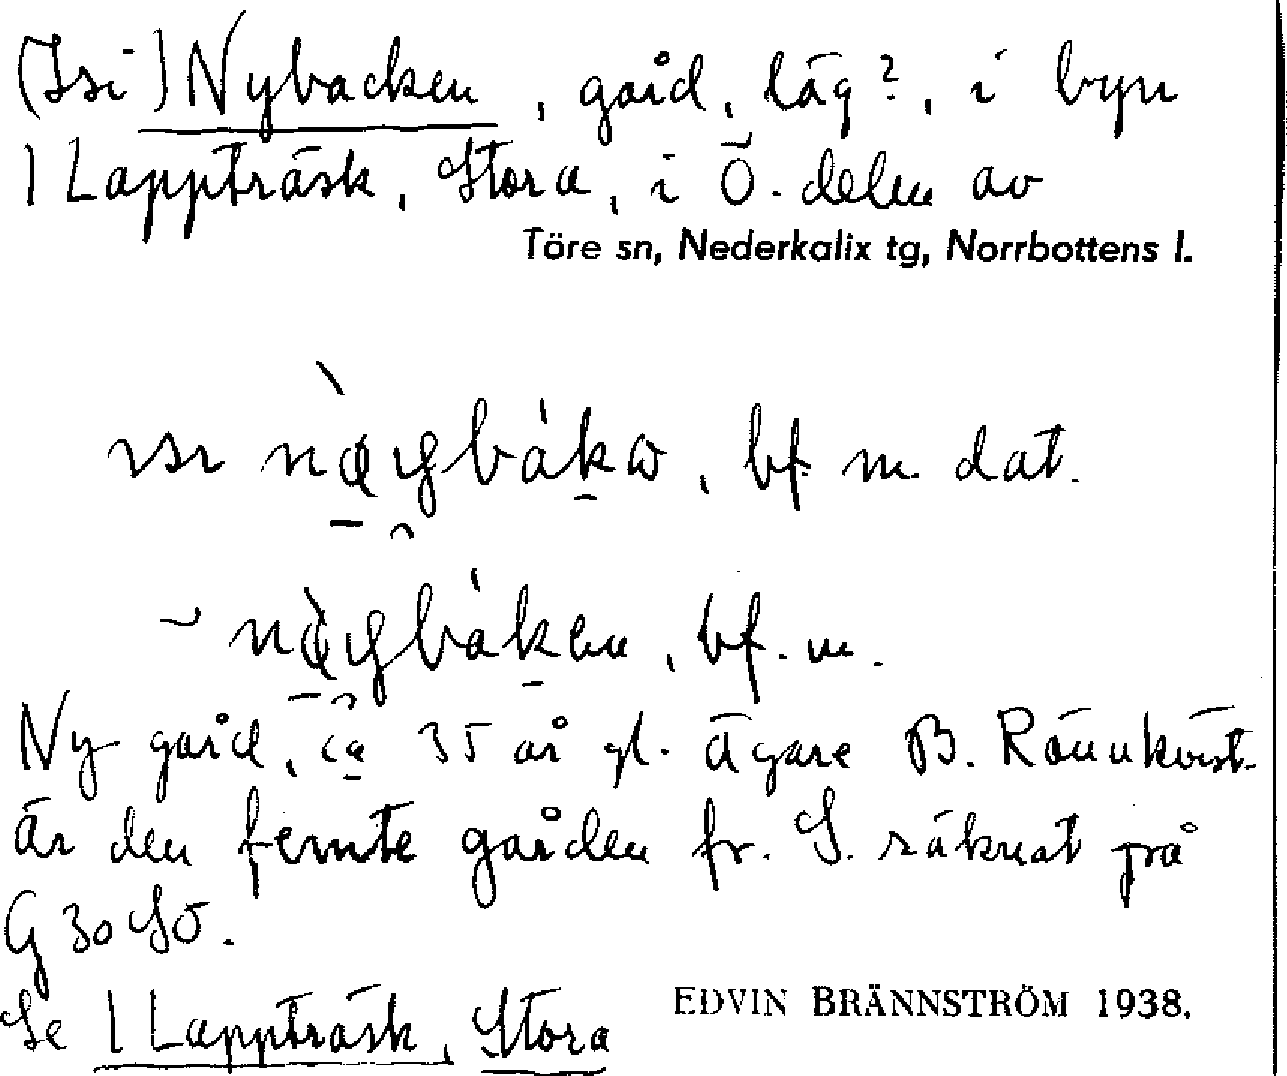 (Isi) Nybacken, gård, läg?, i byn
1 Lappträsk, Stora, i Ö. delen av
Töre sn, Nederkalix tg, Norrbottens l.
bf. m. dat.
bf. m.
Ny gård, ca 35 år gl. ägare B. Rönnkvist.
Är den femte gården fr. S. räknat på
G 30 SÖ.
Se 1 Lappträsk, Stora
EDVIN BRÄNNSTRÖM 1938.